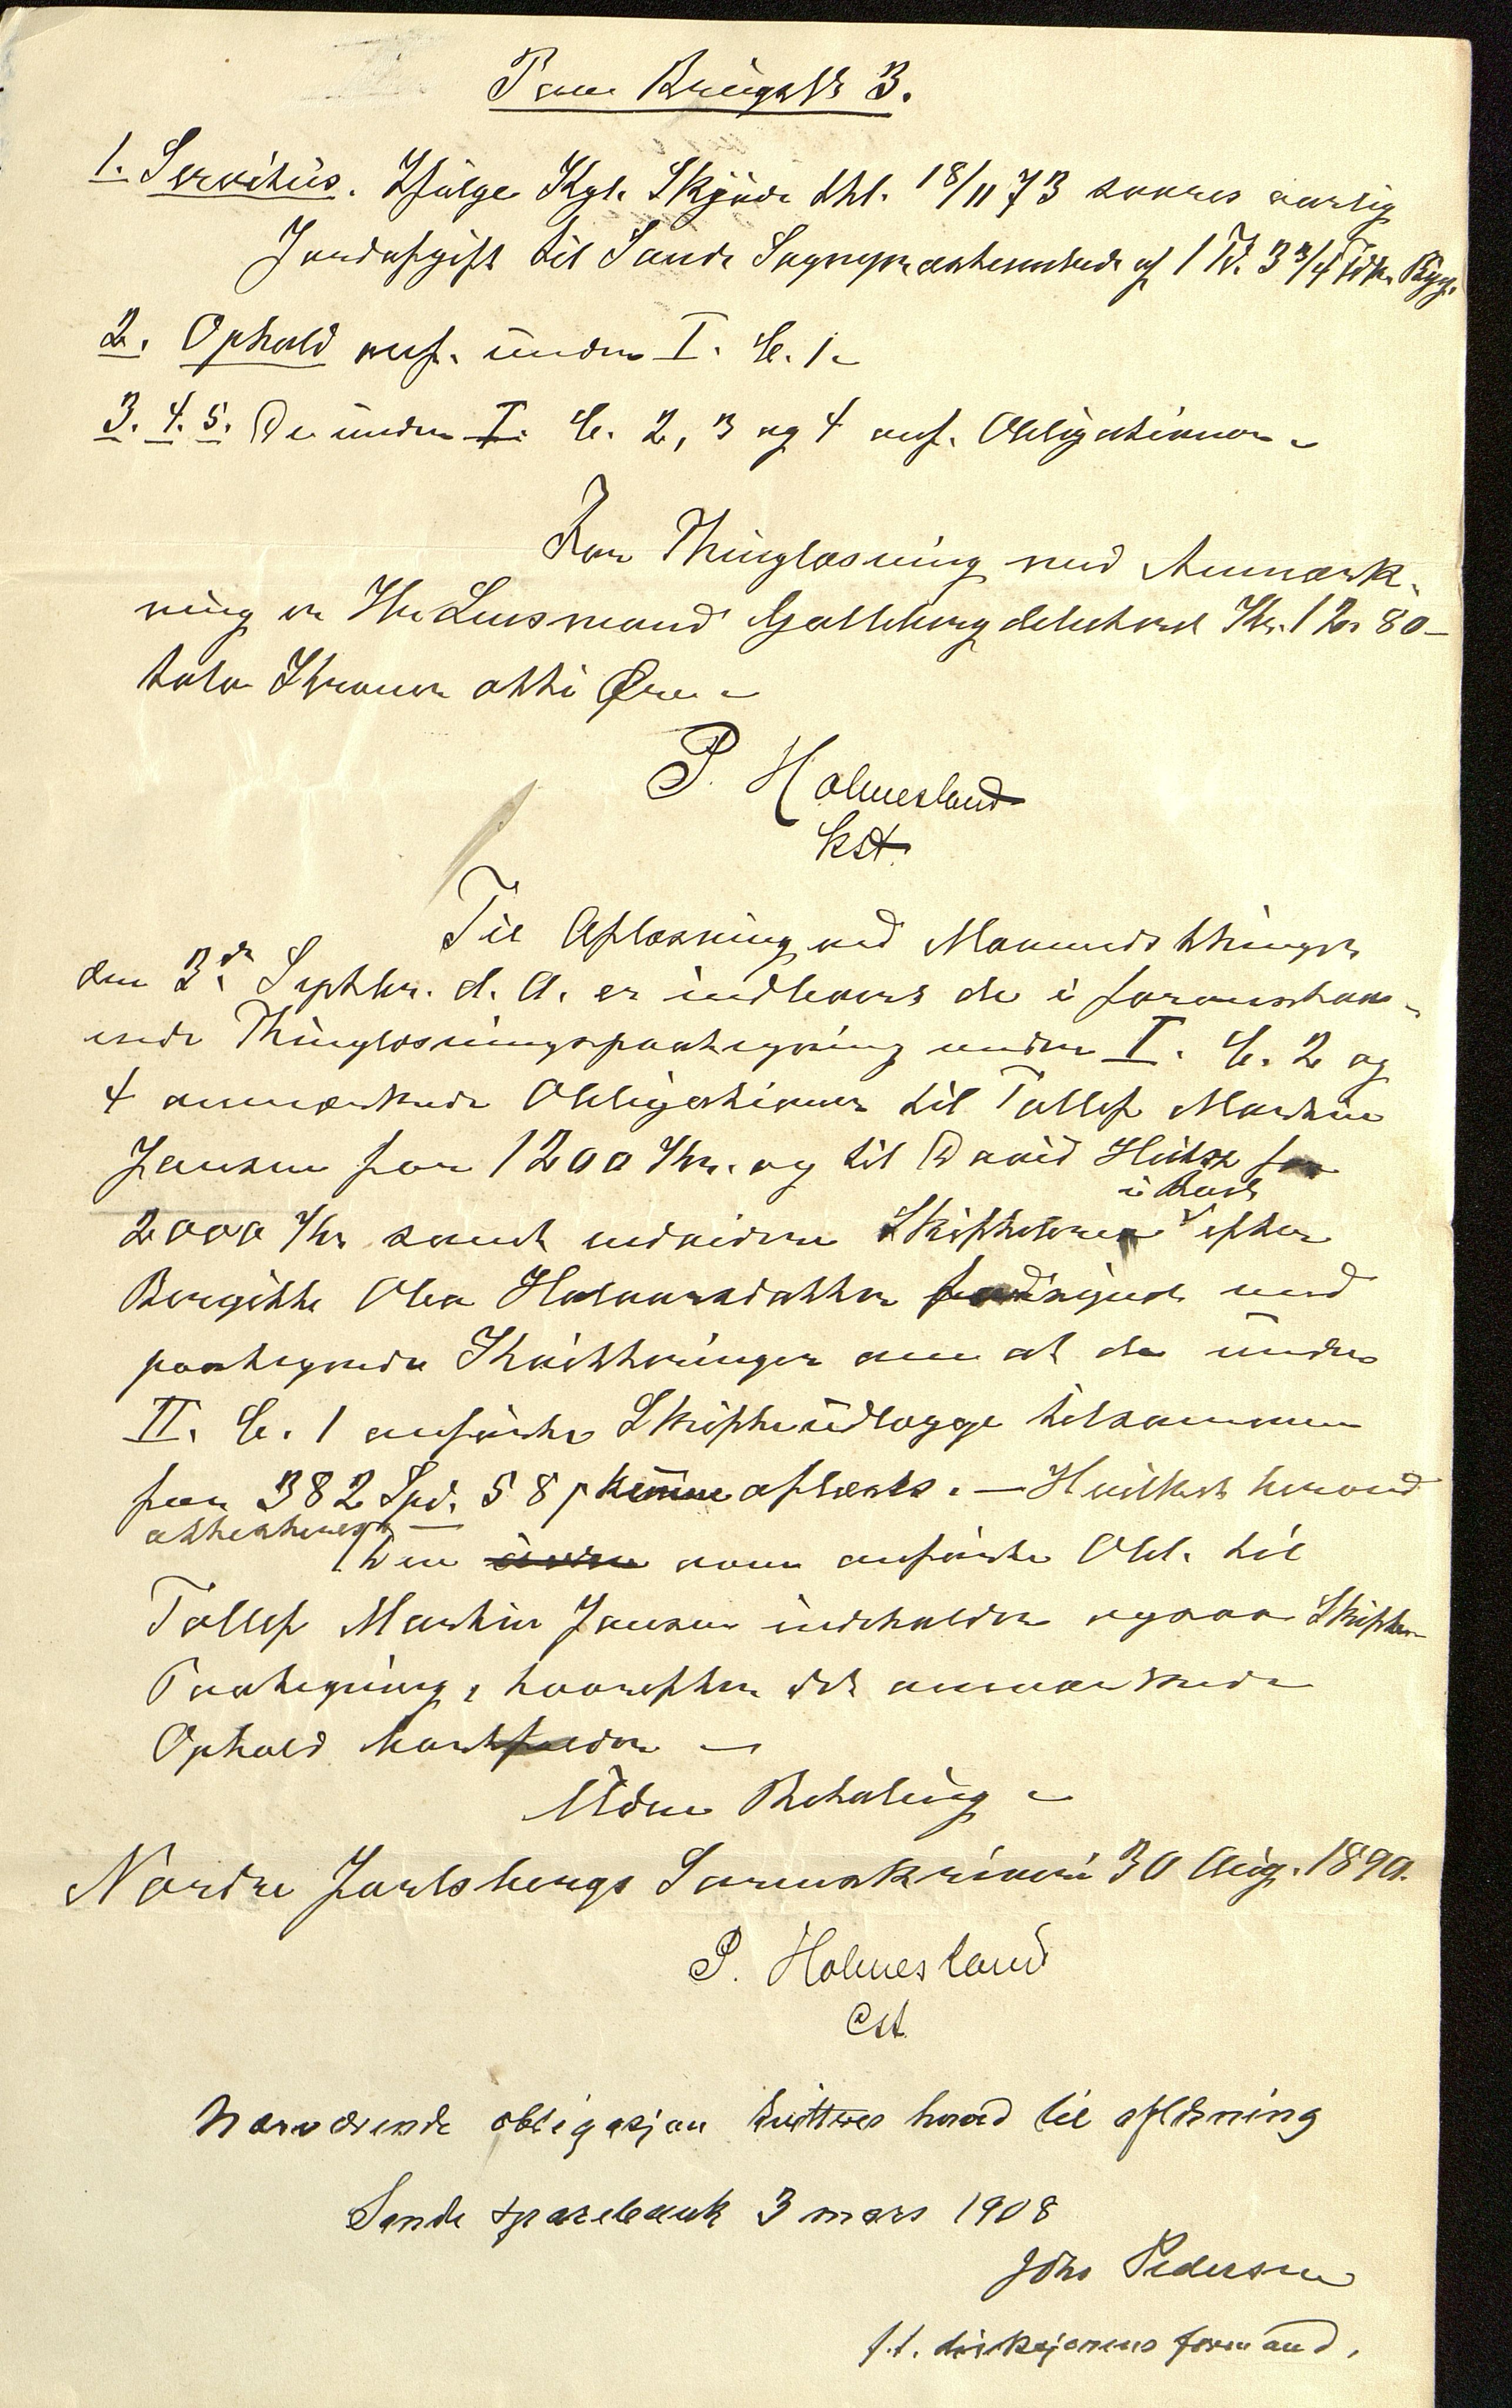 Paa Brugsk 3.
1. Servitus. Ifølge Kgl. Skjøde thl. 18/11 73 svares aarlig
Jordafgift til Sande Sognepræsteembede af 1 Td. 3 3/4 Fdkr. Byg.
2. Ophold anf. under I. C. 1.
3. 4. 5. De under I. C. 2, 3 og 4 anf. Obligationer.
For Thinglæsning med Anmærk-
ning er Hr Lensmand Galleberg debiteret Kr. 12. 80 –
tolv Kroner otti Øre.
P. Holmesland
kst.
Til Aflæsning ved Maanedsthinget
den 3die Septbr. d. A. er indleveret de i foranstaa-
ende Thinglæsningspaategning under I. C. 2 og
4 anmærkede Obligationer til Tollef Martin
Jansen for 1200 Kr. og til David for
2000 Kr samt endvidere Skiftebrev i Boet efter
Bergitte Olea Halvorsdatter med
paategnede Kvitteringer om at de under
II. C. 1 anførte Skifteudlægge tilsammen
for 382 Spd. 58 aflæses. – Hvilket herved
attesteres
Den oven anførte Obl. til
Tollef Martin Jansen indeholder ogsaa Skifter
Paategning, hvorefter det anmærkede
Ophold bortfalder –
Uden Betaling –
Nordre Jarlsbergs Sorenskriveri 30 Aug. 1890.
P. Holmesland
Cst.
Nærværende obligasjon kvitteres herved til aflæsning
Sande sparebank 3 mars 1908
Johs Pedersen
f.t. direksjonens formand.